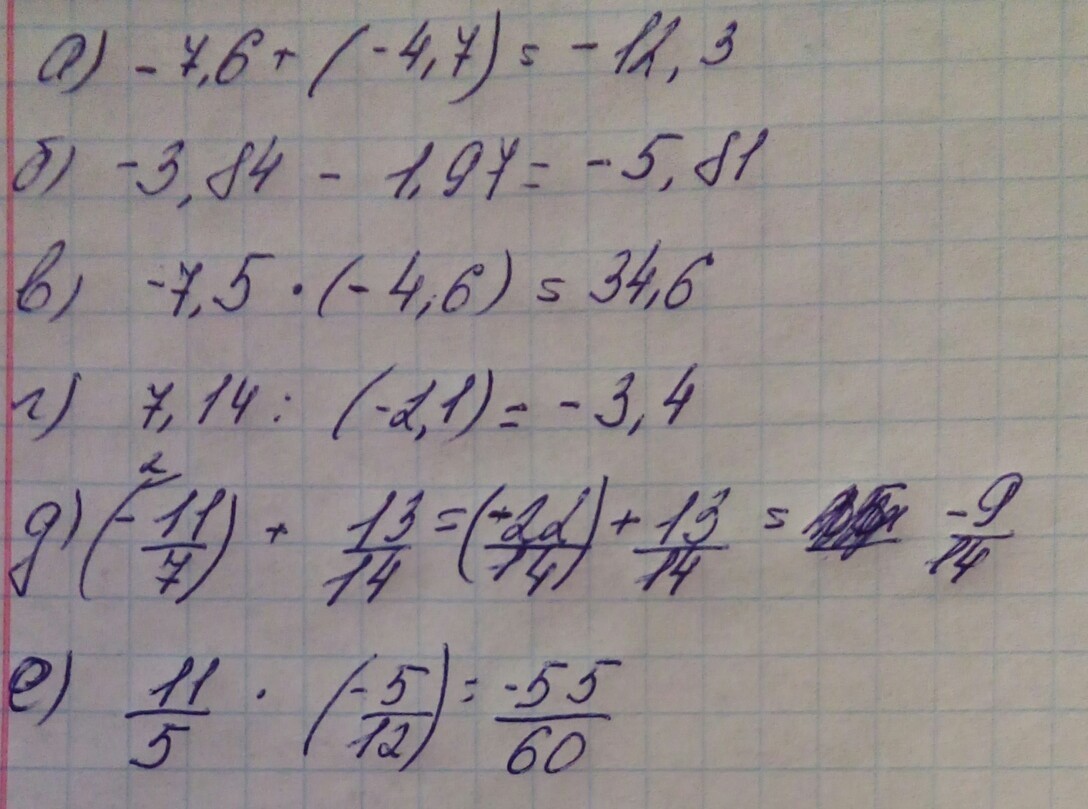 а) -7,6 + (-4,7) = -12,3
б) -3,84 - 1,97 = -5,81
в) -7,5 · (-4,6) = 34,6
г) 7,14 : (-2,1) = -3,4
д) (-11/7)² + 13/14 = (-22/14) + 13/14 = -9/14
е) 11/5 · (-5/12) = -55/60